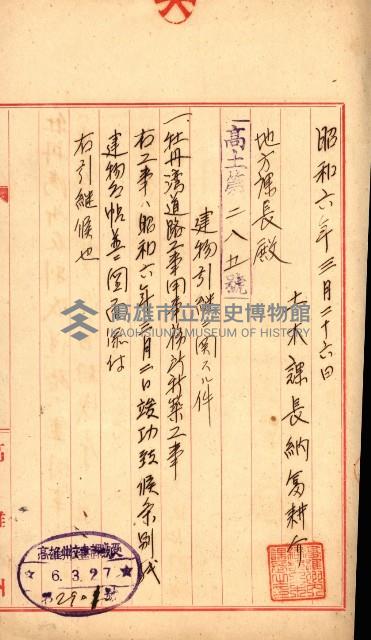 昭和六年三月二十六日
土木課長納富耕介
地方課長殿
高土第二八九號
建物引継ニ関スル件
一、牡丹湾道路工事用事務所新築工事
右工事ハ昭和六年三月二日竣功致候条別紙
建物台帖並ニ図面添付
右引継候也
高雄市立歷史博物館
KAOHSIUNG MUSEUM OF HISTORY
6.3.27
高雄州